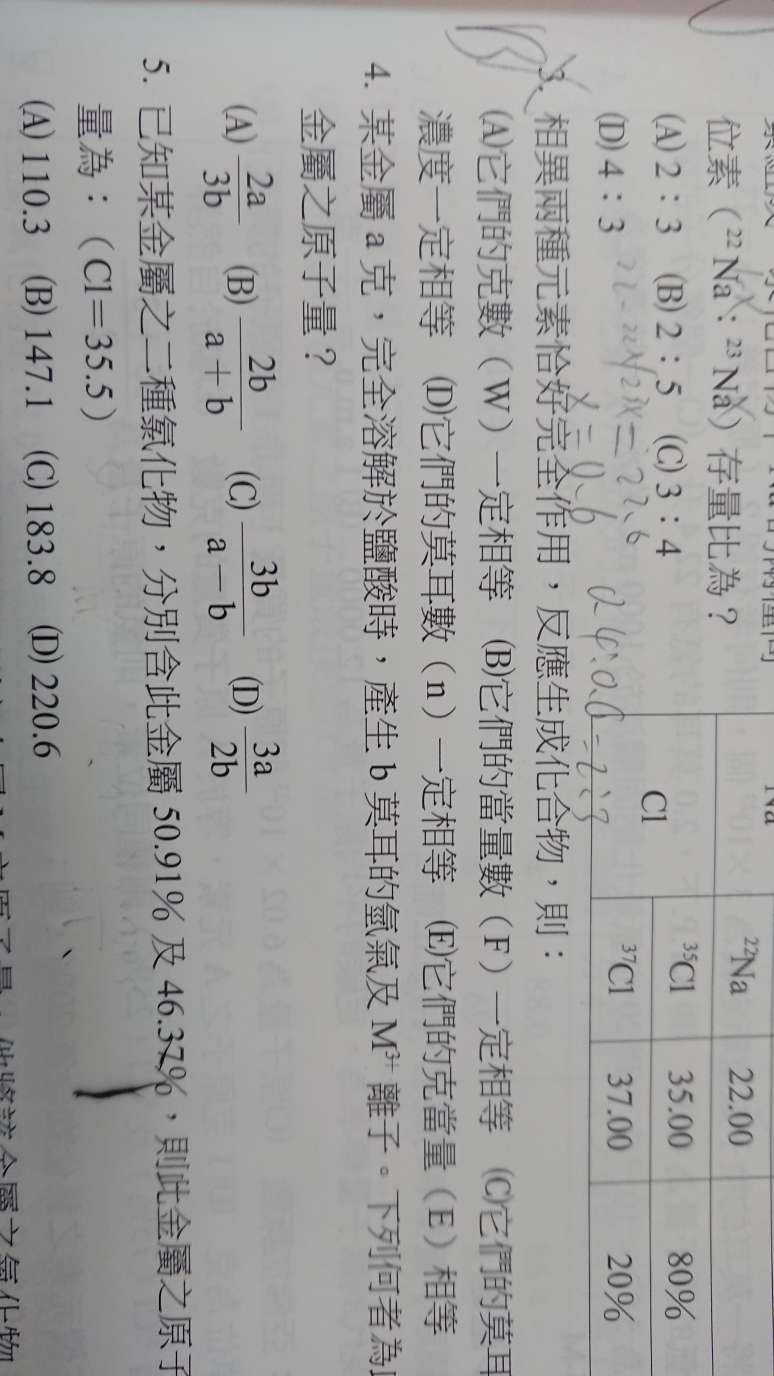 位素（²²Na：²³Na）存量比為？
(A) 2：3　(B) 2：5　(C) 3：4
(D) 4：3
Na
²²Na　22.00
Cl　³⁵Cl　35.00　80%
³⁷Cl　37.00　20%
22-22x+23x=22.6
x=0.6
0.4:0.6=2:3
3. 相異兩種元素恰好完全作用，反應生成化合物，則：
(A)它們的克數（W）一定相等　(B)它們的當量數（F）一定相等　(C)它們的莫耳
濃度一定相等　(D)它們的莫耳數（n）一定相等　(E)它們的克當量（E）相等
4. 某金屬 a 克，完全溶解於鹽酸時，產生 b 莫耳的氫氣及 M³⁺ 離子。下列何者為
金屬之原子量？
(A) 2a/3b　(B) 2b/a＋b　(C) 3b/a－b　(D) 3a/2b
5. 已知某金屬之二種氯化物，分別含此金屬 50.91% 及 46.37%，則此金屬之原子
量為：（Cl＝35.5）
(A) 110.3　(B) 147.1　(C) 183.8　(D) 220.6